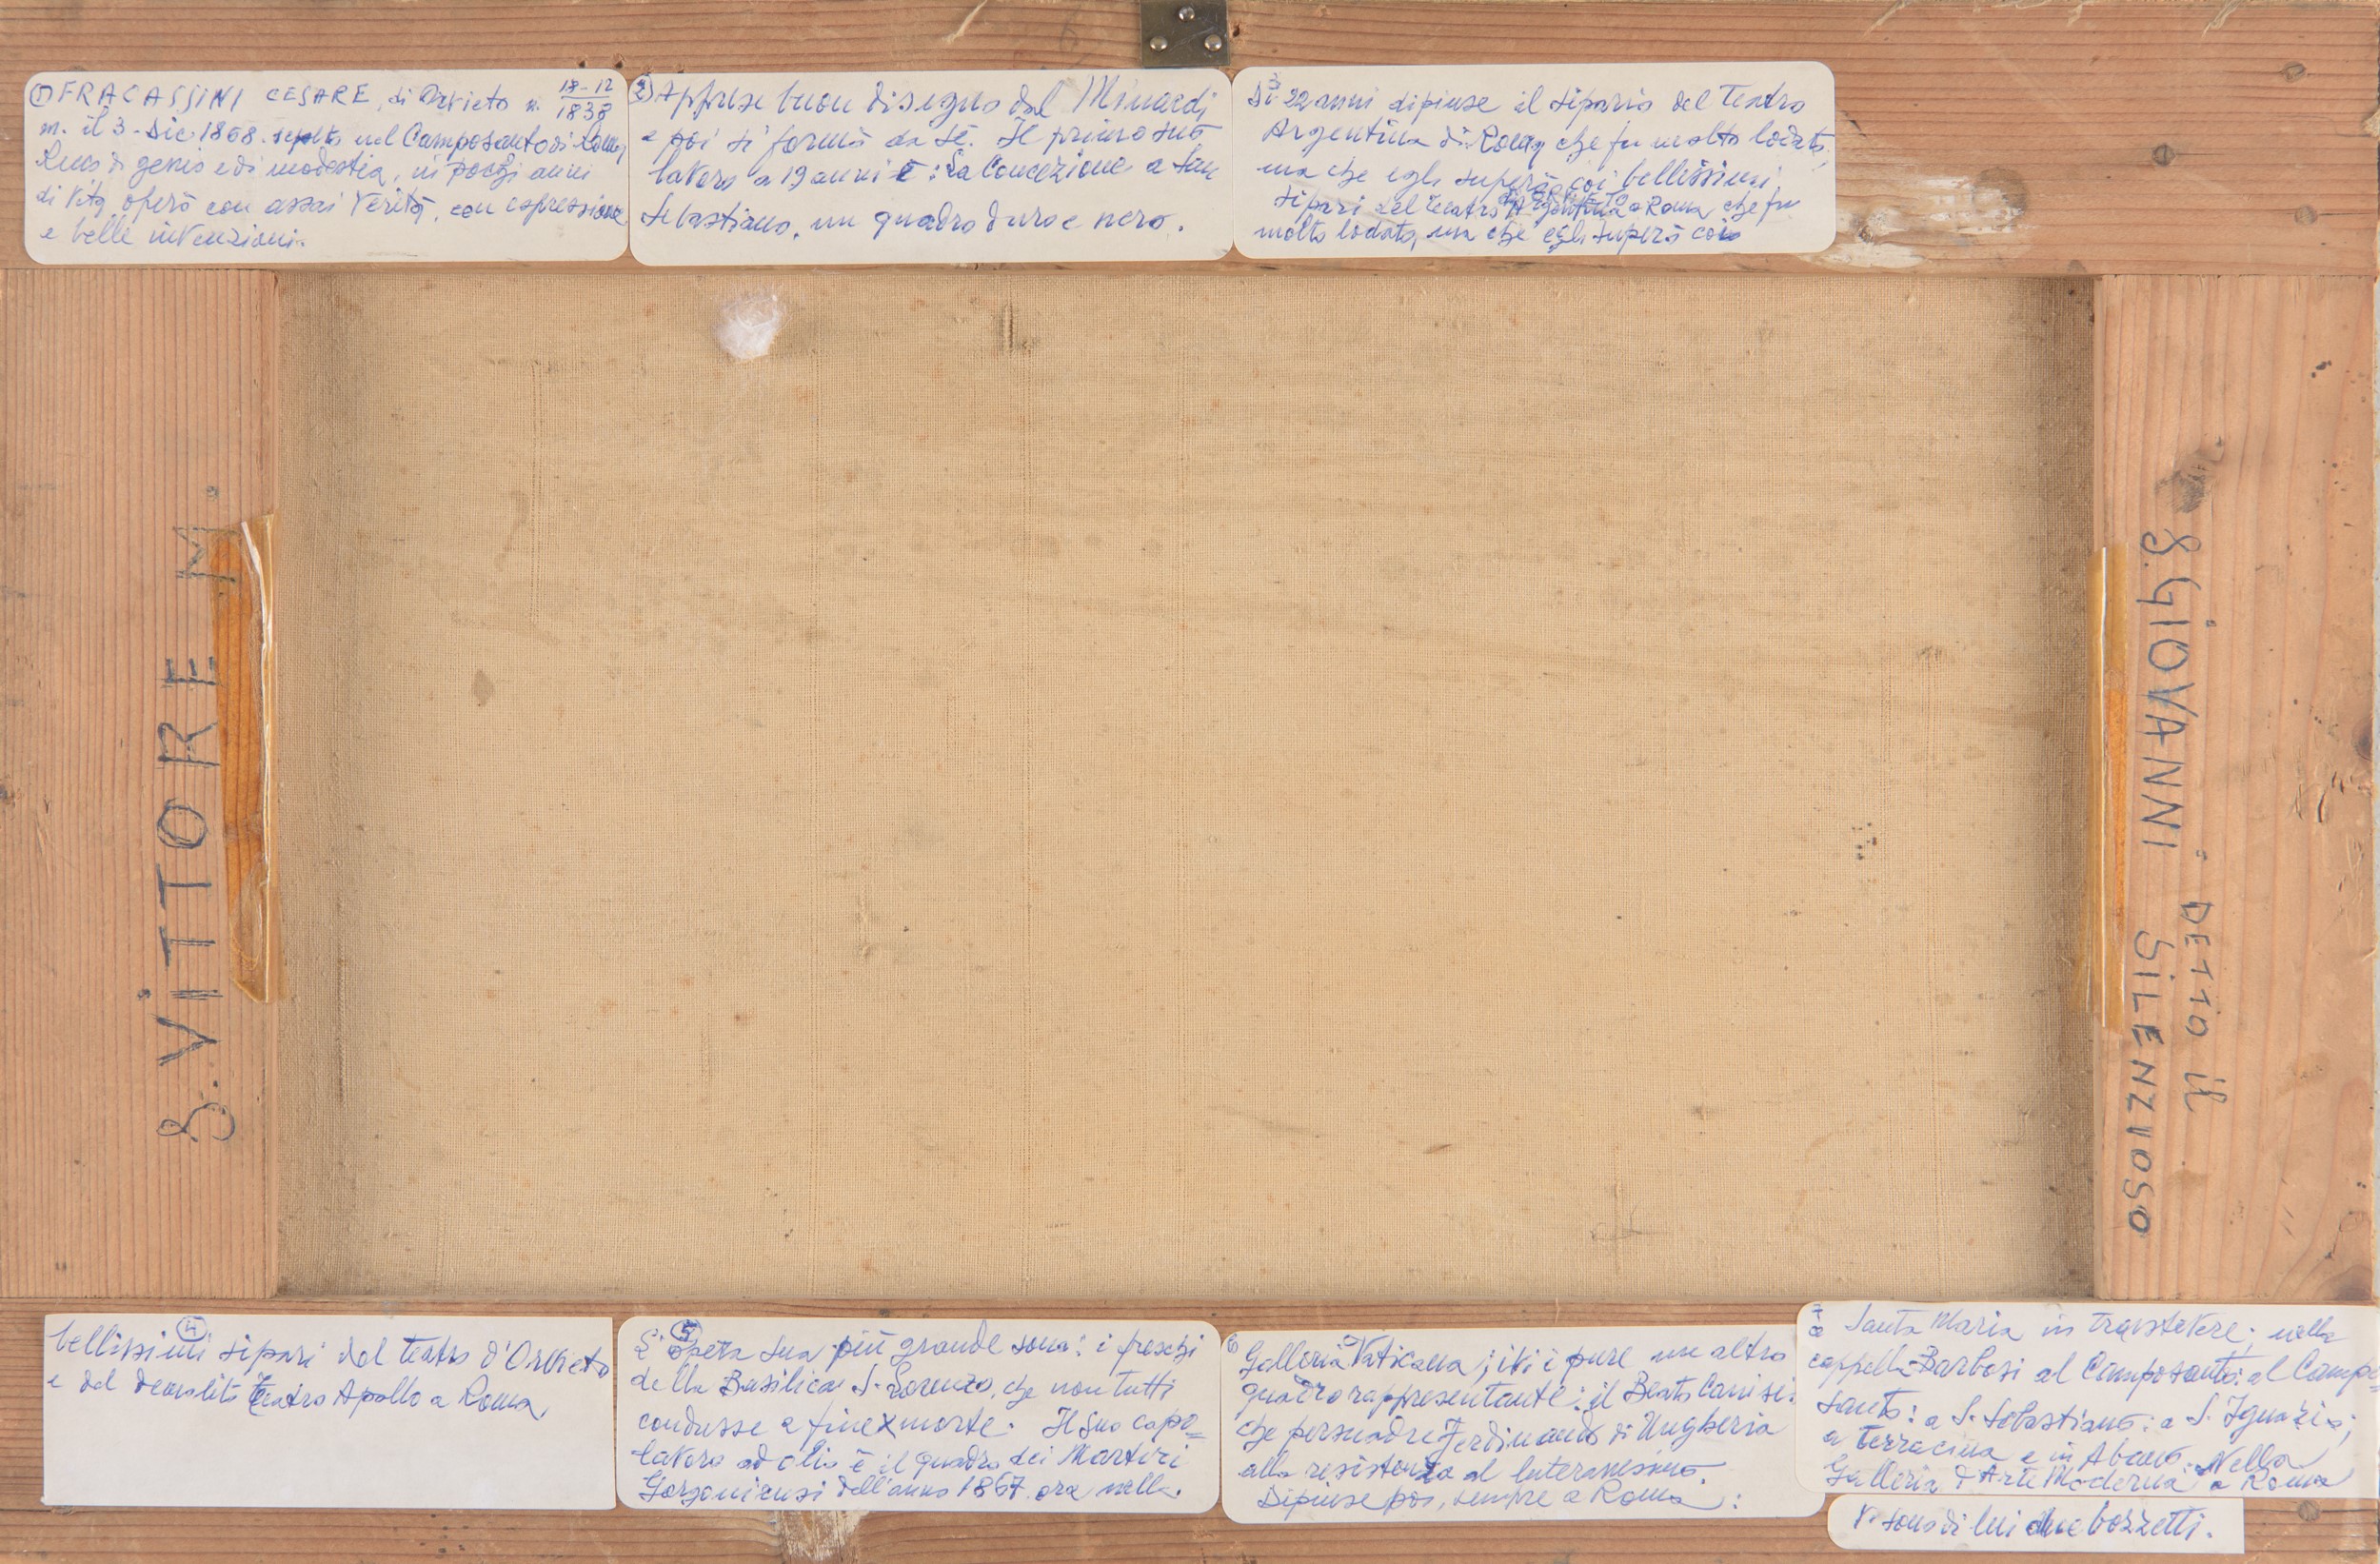 ① FRACASSINI CESARE, di Orvieto n. 18-12 1838
m. il 3-Dic. 1868. sepolto nel Camposanto di Roma
di genio e di modestia, in pochi anni
di Vita, operò con assai Verità, con espressione
e belle invenzioni.
② Apprese buon disegno dal Minardi
e poi si formò da sé. Il primo suo
lavoro a 19 anni è: La Concezione a San
Sebastiano, un quadro duro e nero.
3
Di 22 anni dipinse il sipario del Teatro
Argentina di Roma che fu molto lodato,
ma che egli superò coi bellissimi
sipari del teatro Argentina a Roma che fu
molto lodato, ma che egli superò coi
S. VITTORE M.
S. GIOVANNI DETTO il
SILENZIOSO
④
bellissimi sipari del teatro d'Orvieto
e del demolito Teatro Apollo a Roma,
⑤
L'opera sua più grande sono: i freschi
della Basilica S. Lorenzo, che non tutti
condusse a fine x morte. Il suo capo=
lavoro ad olio è il quadro dei Martiri
Gorgoniensi dell'anno 1867. ora nella.
6
Galleria Vaticana; ivi è pure un altro
quadro rappresentante: il Beato Canisi:
che persuadre Ferdinando di Ungheria
alla resistenza al luteranesimo.
Dipinse poi, sempre a Roma:
7
a Santa Maria in Trastevere; nella
cappella Barbosi al Camposanto: al Campo
santo: a S. Sebastiano: a S. Ignazio;
a Terracina e in Abano. Nella
Galleria d'Arte Moderna a Roma
Vi sono di lui due bozzetti.